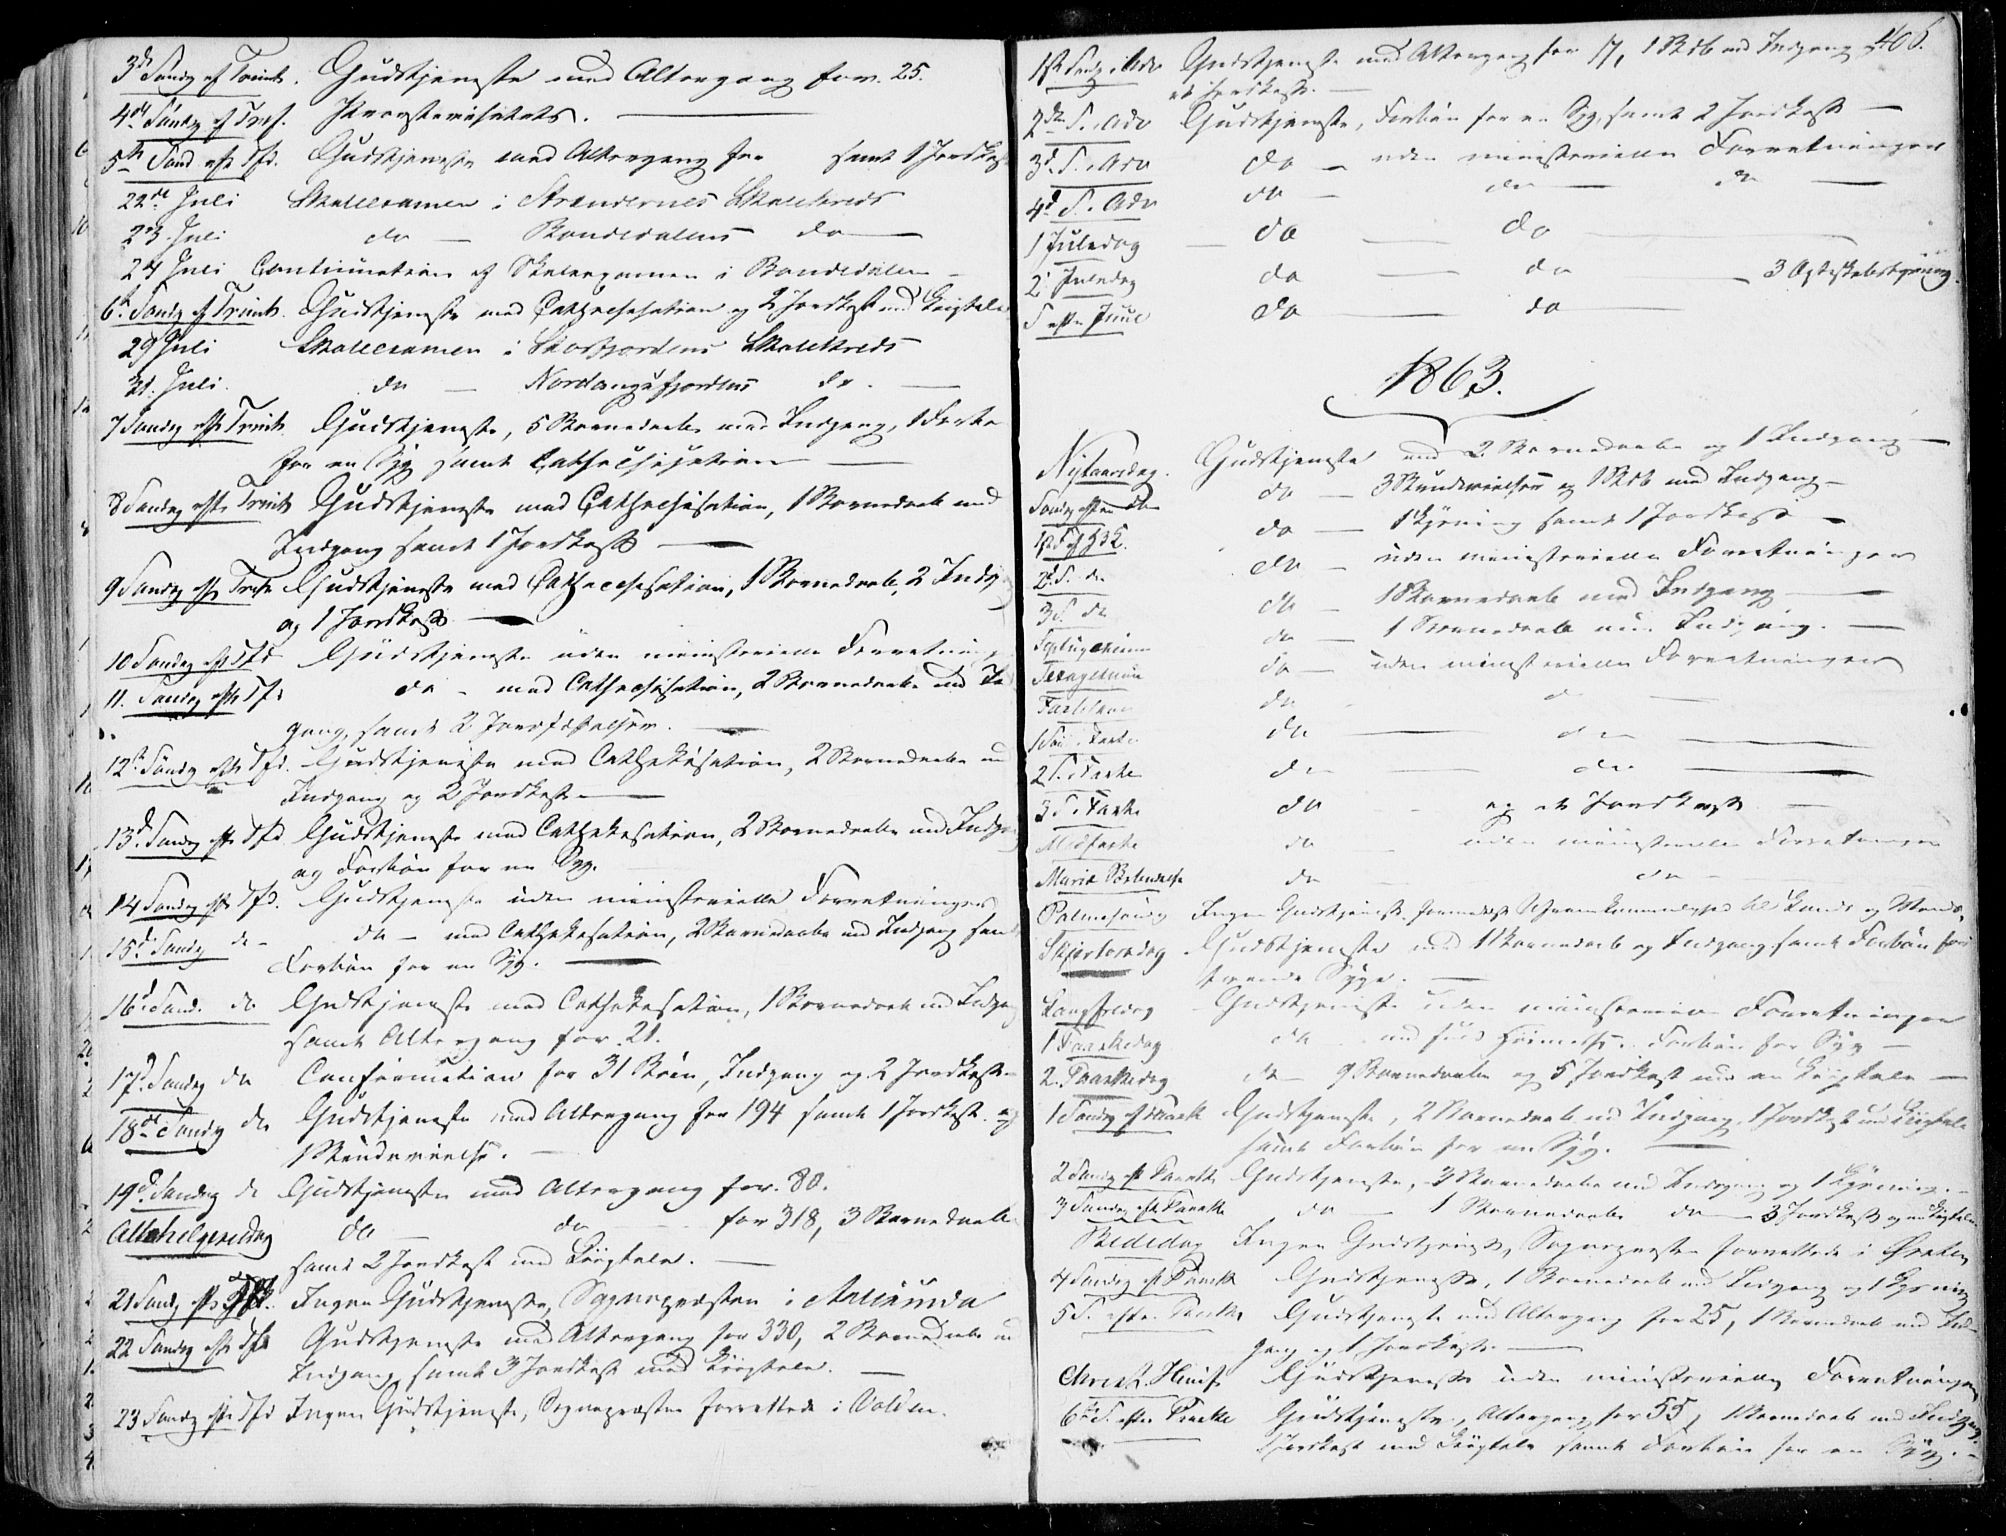 3de Søndg ef Trinit. Gudstjeneste med Altergang for 25.
4de Søndg ef Tref. Provstevisitats.
5te Sønd eft Tfd. Gudstjeneste med Altergang for samt 1 Jordkast
22de Juli Skoleexamen i Strendernes Skolekreds
23 Juli do Bondedalens do
24 Juli Continuation af Skoleexamen i Bondedalen
6te Søndg ef Trinit. Gudstjeneste med Cathechisation og 2 Jordkast med Liigtale
29 Juli Skoleexamen i Storfjordens Skolekreds
31. Juli do Nordangsfjordens do.
7 Søndag efter Trinit Gudstjeneste, 5 Barnedaab med Indgang, 1 Forbøn
for en Syg samt Cathechisation
8 Søndag eft Trinit Gudstjeneste med Cathechisation, 1 Barnedaab med
Indgang samt 1 Jordkast
9 Søndag eft Trefr Gudstjeneste med Cathechisation, 1 Barnedaab, 2 Indg
og 1 Jordkast
10 Søndag eft Tfd Gudstjeneste uden ministerielle Forretning
11. Søndag eft Tfd do - med Cathechisation, 2 Barnedaabe med In
gang, samt 2 Jordfæstelser.
12te Søndg eft Tfd. Gudstjeneste med Cathekisation, 2 Barnedaabe m
Indgang og 2 Jordkast
13d. Søndg eft Tfd Gudstjeneste med Cathekisation, 2 Barnedaabe med Indga
og Forbøn for en Syg.
14 Søndag eft Tfd. Gudstjeneste uden ministerielle Forretninger
15d. Søndg do - do - med Cathekisation, 2 Barnedaabe med Indgang sam
Forbøn for en Syg.
16d Sønd. do Gudstjeneste med Cathekisation, 1 Barnedaab med Indga
samt Altergang for 21.
17d. Søndag do Confirmation for 31 Børn, Indgang og 2 Jordkast
18de Søndg do Gudstjeneste med Altergang for 194 samt 1 Jordkast. og
1 Brudevielse.
19d. Søndag do Gudstjeneste med Altergang for 80.
Allehelgensdag do do for 318, 3 Barnedaabe
samt 2 Jordkast med Liigtale.
21 Søndg eft Tfd. Ingen Gudstjeneste, Sognepræsten i
22 Søndag eft Tfd Gudstjeneste med Altergang for 330, 2 Barnedaabe m
Indgang samt 3 Jordkast med Liigtale.
23 Søndg eft Tfd Ingen Gudstjeneste, Sognepræsten forrettede i Volden.
406.
1ste Søndg i Adv Gudstjeneste med Altergang for 17, 1 Bdb med Indgang
et Jordkast.
2de S. i Adv Gudstjeneste, Forbøn for en Syg, samt 2 Jordkast
3d. S. i Adv do - uden ministerielle Forretninger
4d S. i Adv do do do
1 Juledag do do
2 Juledag do do 3 Ægteskabslysning
S efter Juul do do
1863.
Nytaarsdag. Gudstjeneste med 2 Barnedaabe og 1 Indgang
Søndg efter do do 3 Brudevielser og 1 Bdb med Indgang
1ste S ef H3K. do 1 Lysning samt 1 Jordkast
2d. S. do do uden ministerielle Forretninger
3d. S. do do 1 Barnedaab med Indgang
Septuagesima do 1 Barnedaab med Indgang.
Sexagesima do uden ministerielle Forretninger
Fastelavn do do
1 Søn i Faste do do
2 S. i Faste do do
3 S. i Faste do og et Jordkast
Midfaste do uden ministerielle Forretninger
Mariæ Bebudelse do do
Palmesøndg Ingen Gudstjeneste formedelst
Skjærtorsdag Gudstjeneste med 1 Barnedaab og Indgang samt Forbøn for
trende Syge.
Langfredag Gudstjeneste uden ministerielle Forretninger
1 Paaskedag do Forbøn for Syg
2. Paaskedag do 9 Barnedaabe og 5 Jordkast med en Liigtale
1 Søndag ef Paaske Gudstjeneste, 2 Barnedaab med Indgang, 1 Jordkast med Liigtale
samt Forbøn for en Syg.
2 Søndg eft Paaske Gudstjeneste, 3 Barnedaabe med Indgang og 1 Lysning.
3 Søndag eft Paaske do 1 Barnedaab do 3 Jordkast og en Liigtale
Bededag Ingen Gudstjeneste, Sognepræsten forrettede i Ørsten
4 Søndag ef Paaske Gudstjeneste, 1 Barnedaab med Indgang og 1 Lysning
5 S. efter Paaske Gudstjeneste med Altergang for 25, 1 Barnedaab med Ind
gang og 1 Jordkast.
Christi Himlf Gudstjeneste uden ministerielle Forretninger
6te S. efter Paaske Gudstjeneste, Altergang for 55, 1 Barnedaab med Indgang
1 Jordkast med Liigtale samt Forbøn for en Syg.